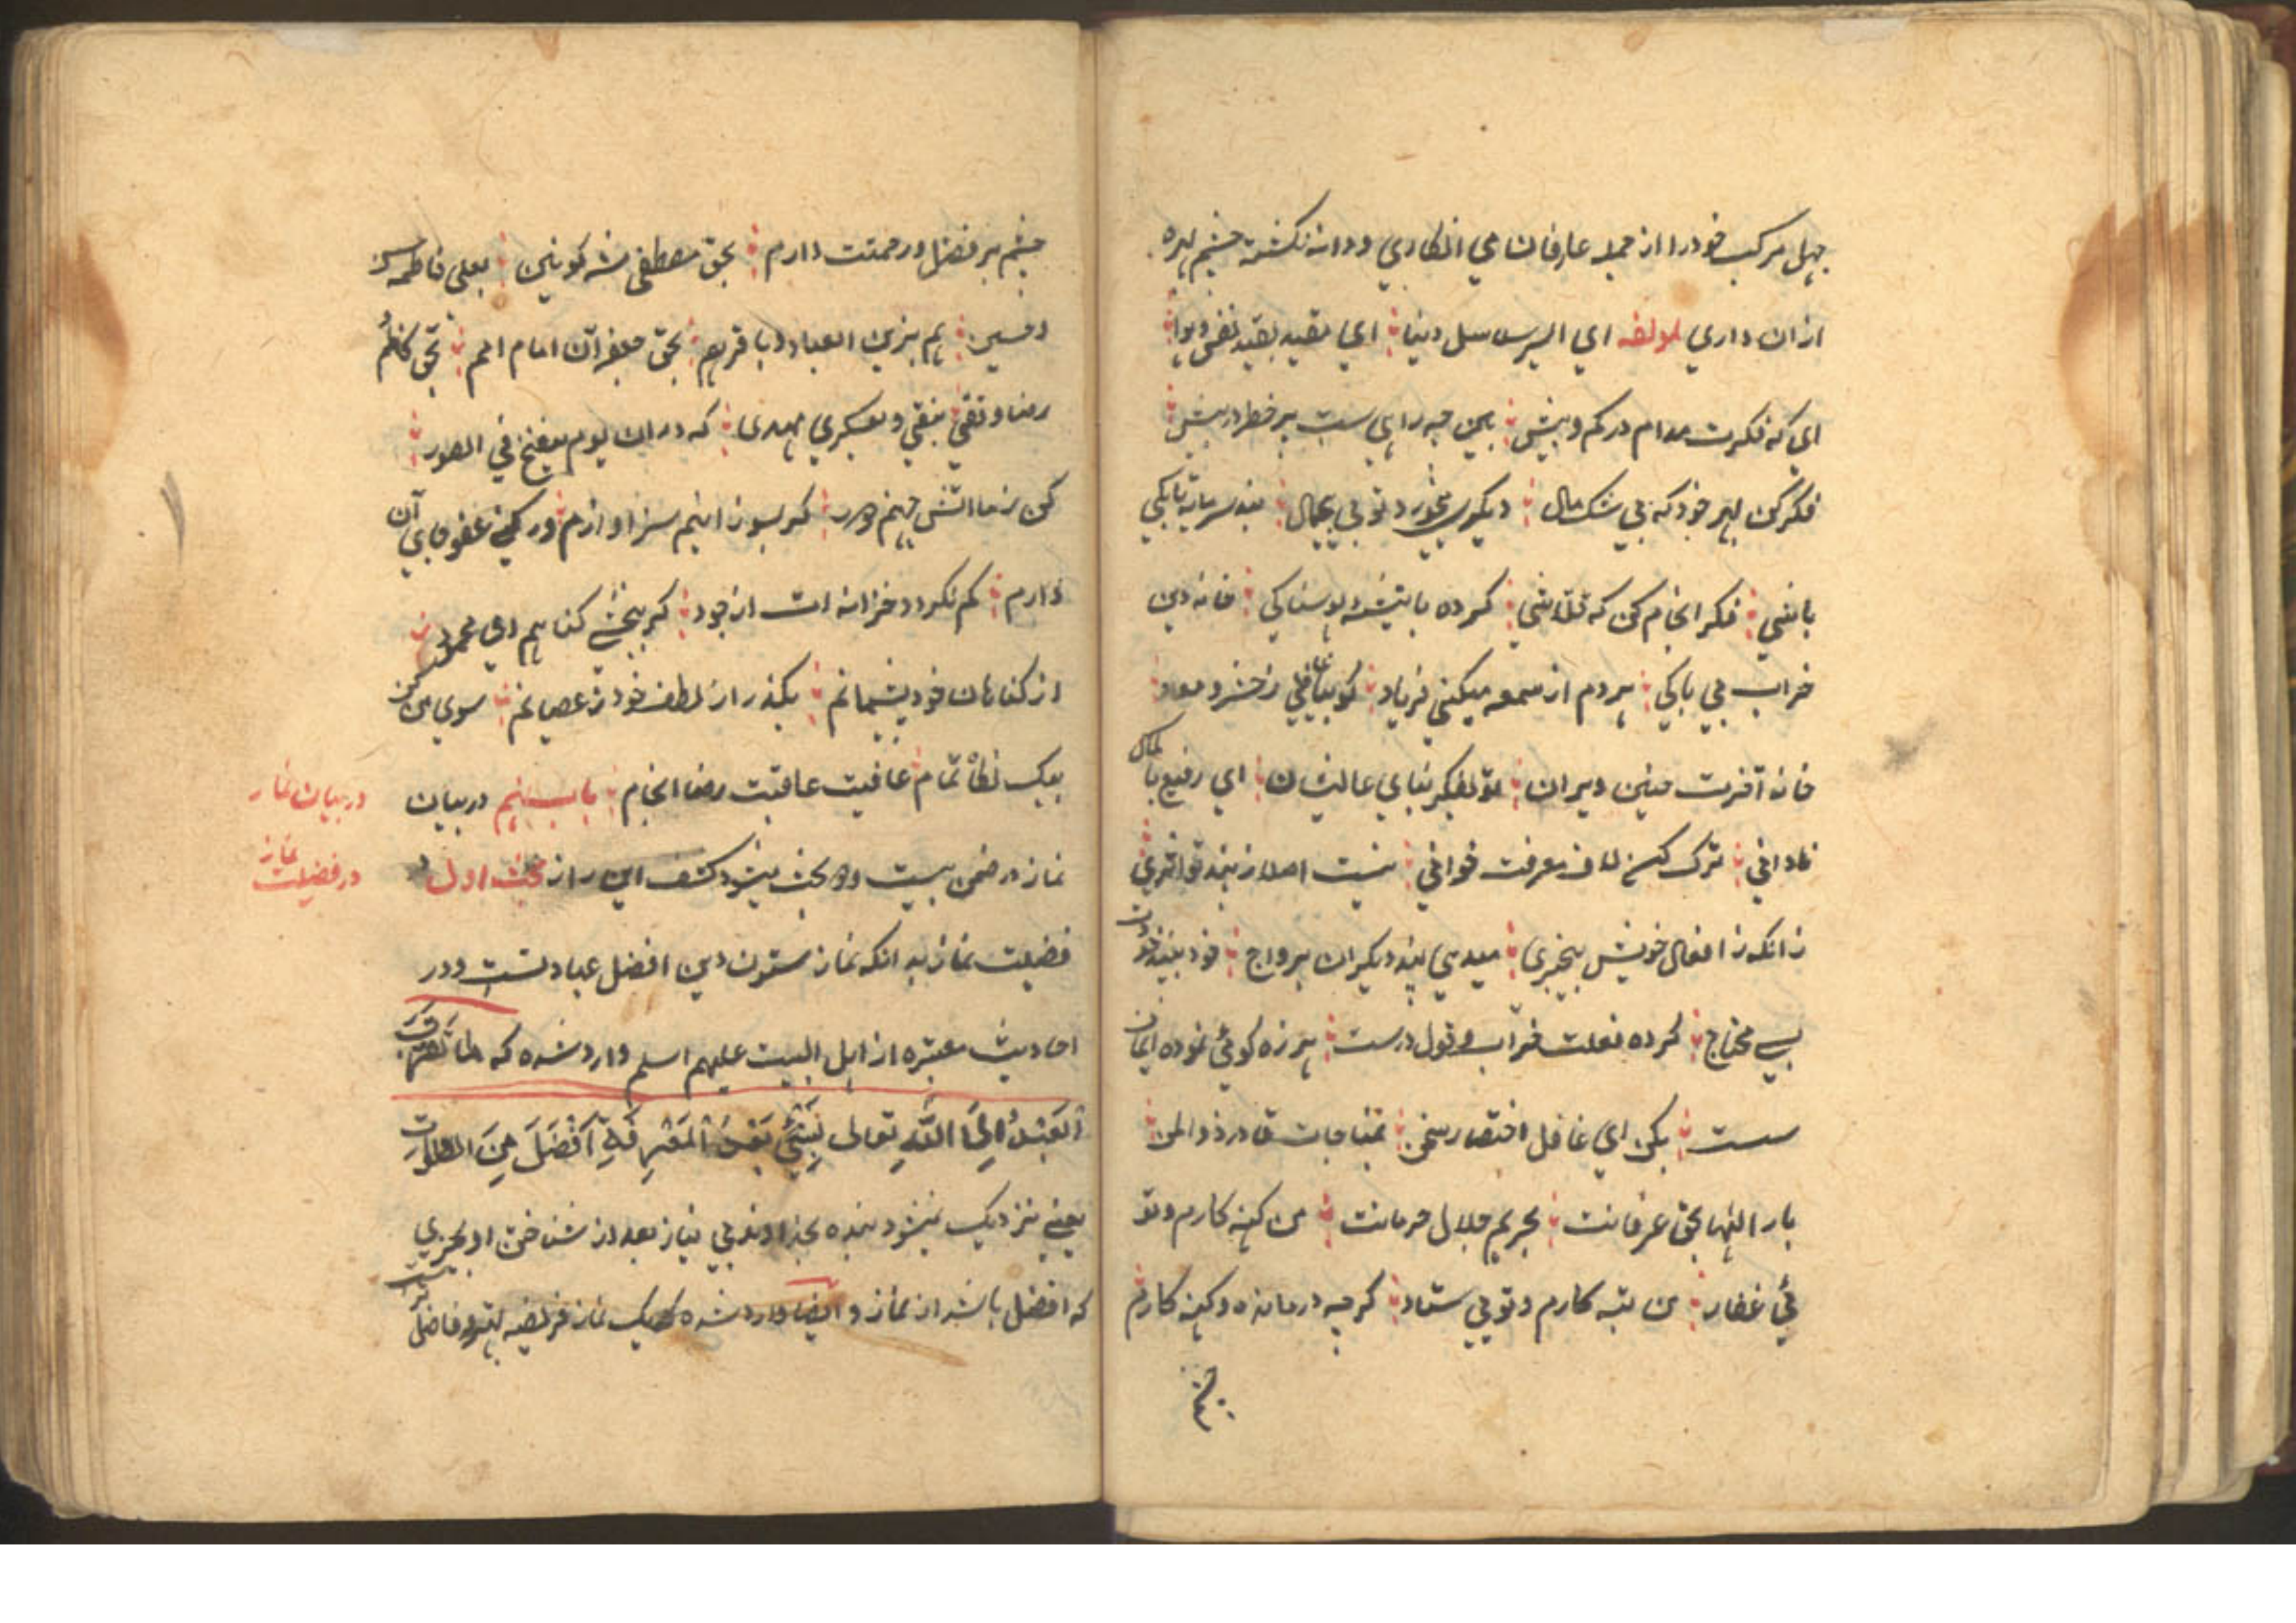 جهل مرکب خود را از جمله عارفان می انکاری و دانه نکشته چشم بهره
از ان داری لمولفه ای اسیر سلاسل دنیا ای مقید بقید نفس و هوا
ای که فکرت مدام در کم و بیش بین چه راهی ست پر خطر در پیش
فکر کن بهر خود که بی شک مال دیکری میخورد تو بی بیجمال چند سر مایه تا بکی
باشی فکر انجام کن که قلاشی کرده با تیشه هوسناکی خانه دین
خراب بی باکی هر دم از سمعه میکنی فریاد کوییا غافلی ز حشر و معاد
خانه آخرت چنین ویران تو بفکر بنای عالیشان ای رفیع با کمال
نادانی ترک کن لاف معرفت خوانی نیست اصلا ز پند تو اثری
زانکه ز افعال خویش بیخبری میدهی پند دیکران بر رواج خود به پند خودت
بسی محتاج کرده فعلت خراب و قول درست هرزه کوئی نموده ایمان
سست بکن ای غافل اختصار سخن بمناجات قادر ذو المن
بار الها بحق عرفانت بحریم جلال حرمانت من کنه کارم و تو
ئی غفار من تبه کارم و تویی ستار کرچه درمانده و کنه کارم
چشم
چشم بر فضل و رحمتت دارم بحق مصطفی شه کونین بعلی فاطمه حسن
و حسین هم بزین العباد و باقر هم بحق جعفر آن امام امم بحق کاظم
رضا و تقی بنقی و بعسکری مهدی که در ان یوم ینفخ فی الصور
کن ز ما اتش جهنم دور کر بسوزانیم سزاوارم ور کنی عفو جای آن
دارم کم نکردد خزانه ات از جود کر ببخشی کناهم ای معبود
از کناهان خود پشیمانم بکذر از لطف خود ز عصیانم سوی من کن
بیک نظاه تمام عافیت عاقبت رضا انجام باب پنجم در بیان
در بیان نماز
نماز در ضمن بیست و و بحث میشود کشف این راز بحث اول در
در فضیلت نماز
فضیلت نماز بدانکه نماز ستون دین افضل عبادتست و در
احادیث معتبره از اهل البیت علیهم اسلم وارد شده که ما تقرب
العبد الی الله تعالی بشیء بعد المعرفة افضل من الصلوات
یعنی نزدیک نمیشود بنده بخداوند بی نیاز بعد از شناختن او بچیزی
که افضل باشد از نماز و ایضا وارد شده که یک نماز فریضه بهتر و فاضلتر است